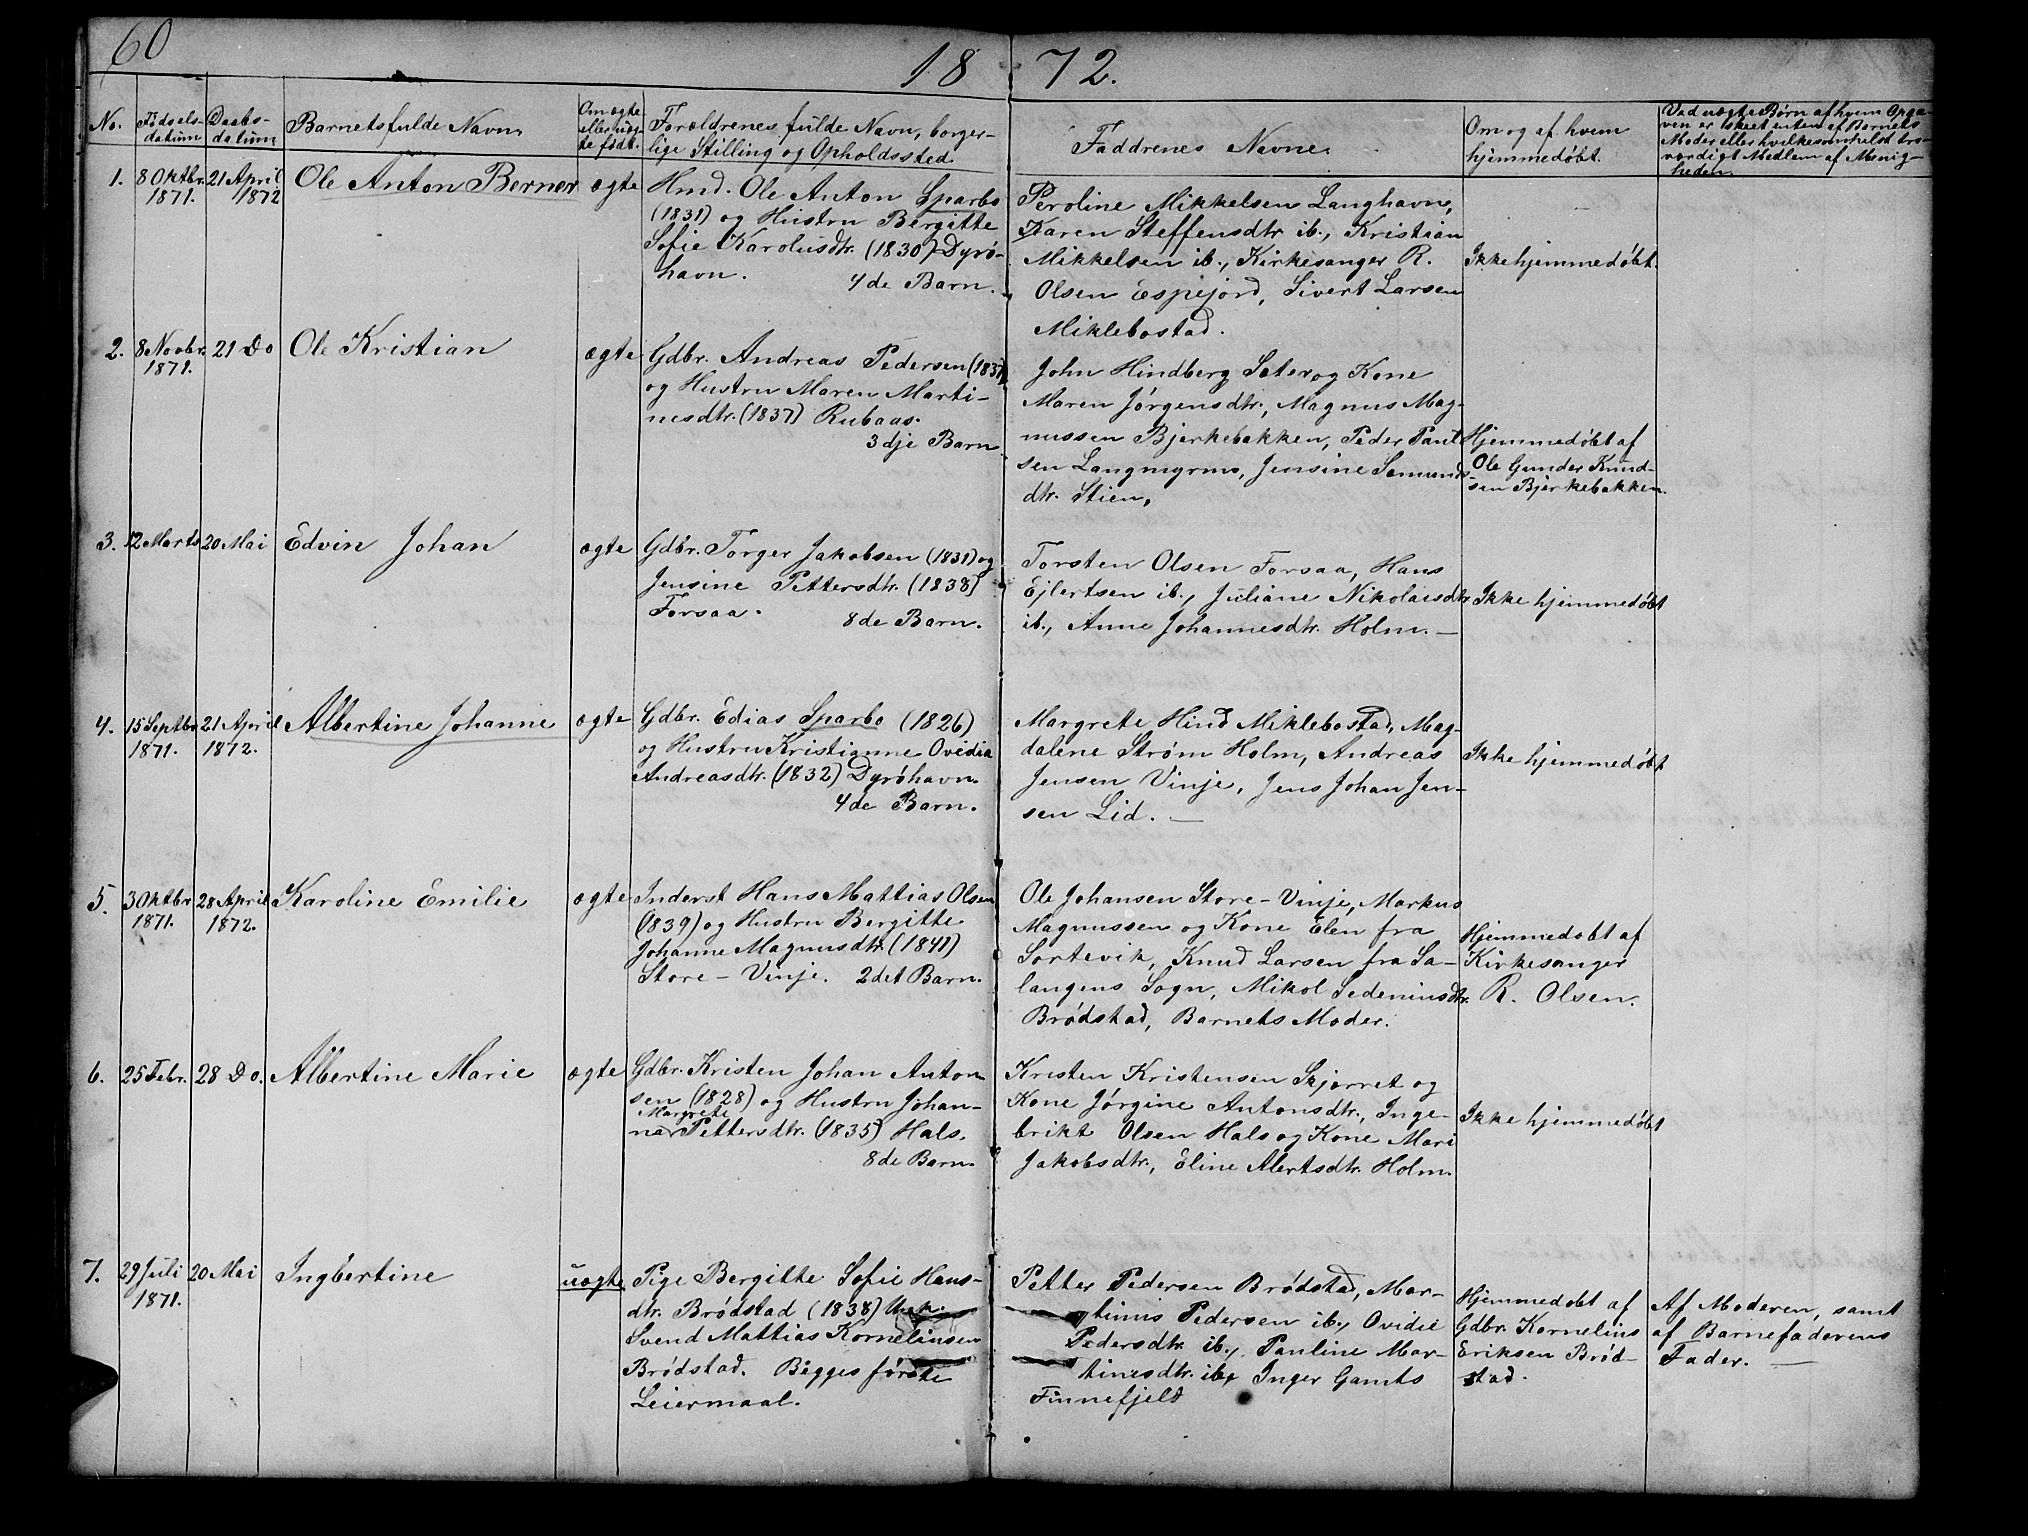 60
18 72.
No.
Födsels-
datum
Daabs-
datum
Barnets fulde Navn.
Om ægte
eller uæg-
te födt.
Forældrenes fulde Navn, borger-
lige Stilling og Opholdssted
Faddrenes Navne.
Om og af hvem
hjemmedøbt.
Ved uægte Børn af hvem Opga-
ven er skeet enten af Barnets
Moder eller hvilketsomhelst tro-
værdigt Medlem af Menig-
heden.
1.
8 Oktbr.
1871.
21 April
1872
Ole Anton Berner
ægte
Hmd. Ole Anton Sparbo
(1831) og Hustru Bergitte
Sofie Karolusdtr. (1830) Dyrö-
havn.
4de Barn.
Peroline Mikkelsen Langhavn,
Karen Steffensdtr ib., Kristian
Mikkelsen ib., Kirkesanger R.
Olsen Espejord, Sivert Larsen
Miklebostad.
Ikke hjemmedøbt.
2.
8 Novbr.
1871.
21 Do
Ole Kristian
ægte
Gdbr. Andreas Pedersen (1837)
og Hustru Maren Marti-
nesdtr. (1837) Rubaas.
3dje Barn
John Hindberg Sæter og Kone
Maren Jørgensdtr., Magnus Mag-
nussen Bjerkebakken, Peder Paul
sen Langmyrmo, Jensine Samunds-
dtr. Stien,
Hjemmedøbt af
Ole Gunder Knud-
sen Bjerkebakken.
3.
12 Marts
20 Mai
Edvin Johan
ægte
Gdbr. Torger Jakobsen (1831) og
Jensine Pettersdtr. (1838)
Forsaa.
8de Barn.
Torsten Olsen Forsaa, Hans
Ejlertsen ib., Juliane Nikolaisdtr
ib., Anne Johannesdtr. Holm. —
Ikke hjemmedøbt
4.
15 Septbr
1871.
21 April
1872.
Albertine Johanne
ægte
Gdbr. Edias Sparbo (1826)
og Hustru Kristianne Ovidia
Andreasdtr. (1832) Dyröhavn.
4de Barn.
Margrete Hind Miklebostad, Mag-
dalene Strøm Holm, Andreas
Jensen Vinje, Jens Johan Jen-
sen Lid. —
Ikke hjemmedøbt
5.
3 Oktbr
1871.
28 April
1872.
Karoline Emilie
ægte
Inderst Hans Mattias Olsen
(1839) og Hustru Bergitte
Johanne Magnusdtr. (1841)
Store-Vinje. 2det Barn.
Ole Johansen Store-Vinje, Markus
Magnussen og Kone Elen fra
Sørtevik, Knud Larsen fra Sa-
langens Sogn, Mikol Sedeniusdtr.
Brødstad, Barnets Moder.
Hjemmedøbt af
Kirkesanger
R. Olsen.
6.
25 Febr.
28 Do.
Albertine Marie
ægte
Gdbr. Kristen Johan Anton
sen (1828) og Hustru Johan-
Margrete
na Pettersdtr. (1835) Hals.
8de Barn.
Kristen Kristensen Skjørret og
Kone Jørgine Antonsdtr., Inge-
brikt Olsen Hals og Kone Mari
Jakobsdtr., Eline Alertsdtr. Holm.
Ikke hjemmedøbt
7.
29 Juli
1871.
20 Mai
Ingbertine
uægte
Pige Bergitte Sofie Hans-
dtr. Brødstad (1838) Unk.
Svend Mattias Kornelinsen
Brødstad. Begges første
Leiermaal.
Petter Pedersen Brødstad, Mar-
tinus Pedersen ib., Ovidie
Pedersdtr. ib., Pauline Mar-
tinesdtr. ib., Inger Gamts
Finnefjeld
Hjemmedøbt af
Gdbr. Kornelius
Eriksen Brød-
stad.
Af Moderen, samt
af Barnefaderens
Fader. —